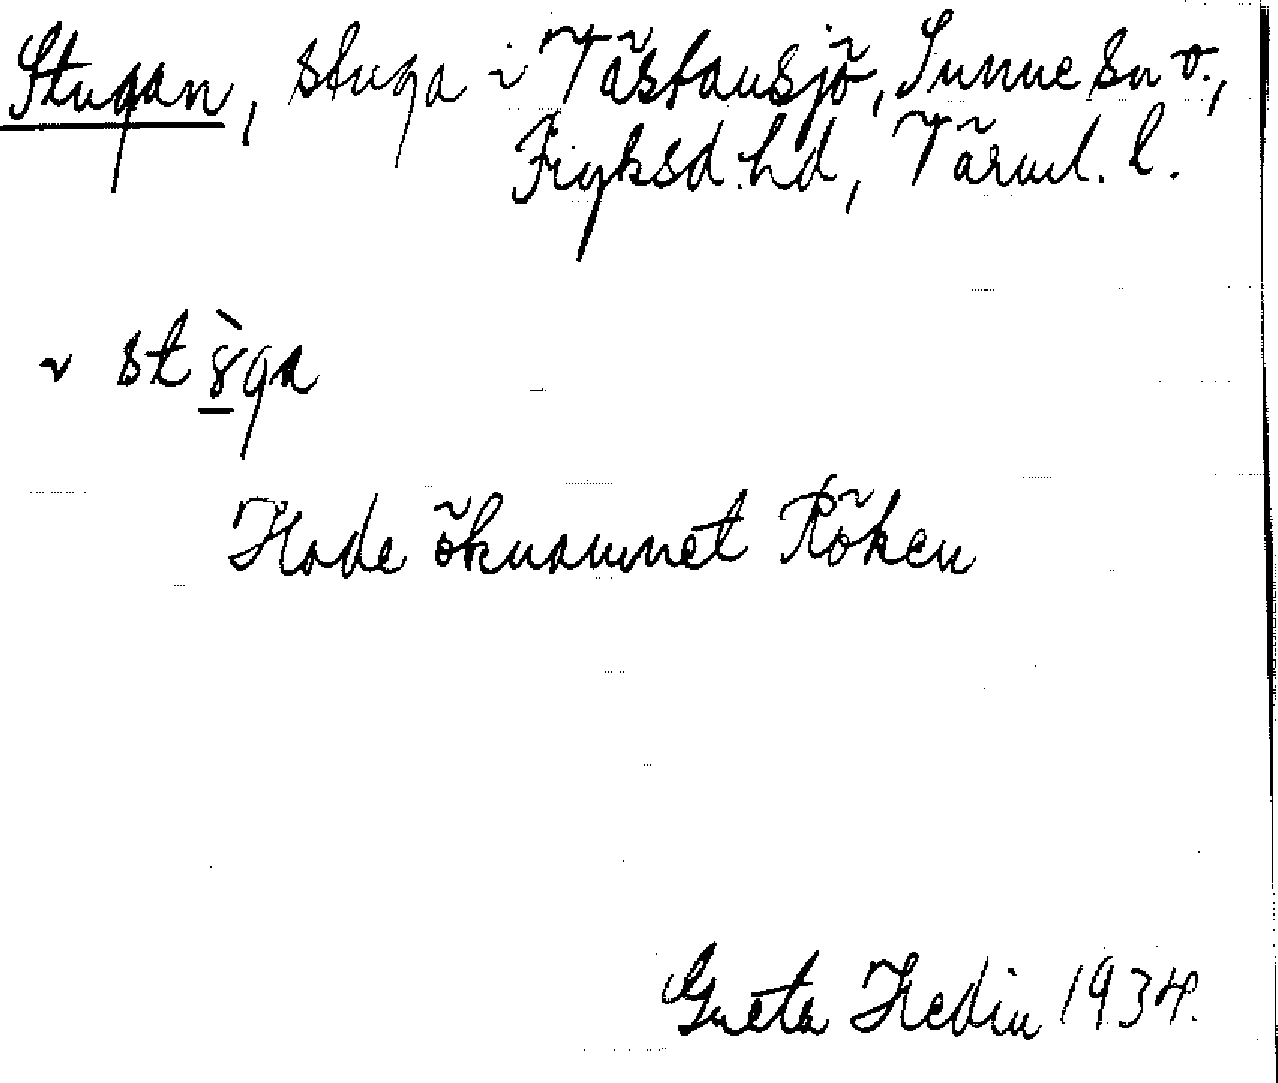 Stugan, stuga i Västansjö, Sunne sn v.,
Fryksd. hd, Värml. l.
~ st8̀ga
Hade öknamnet Röken
Greta Hedin 1934.